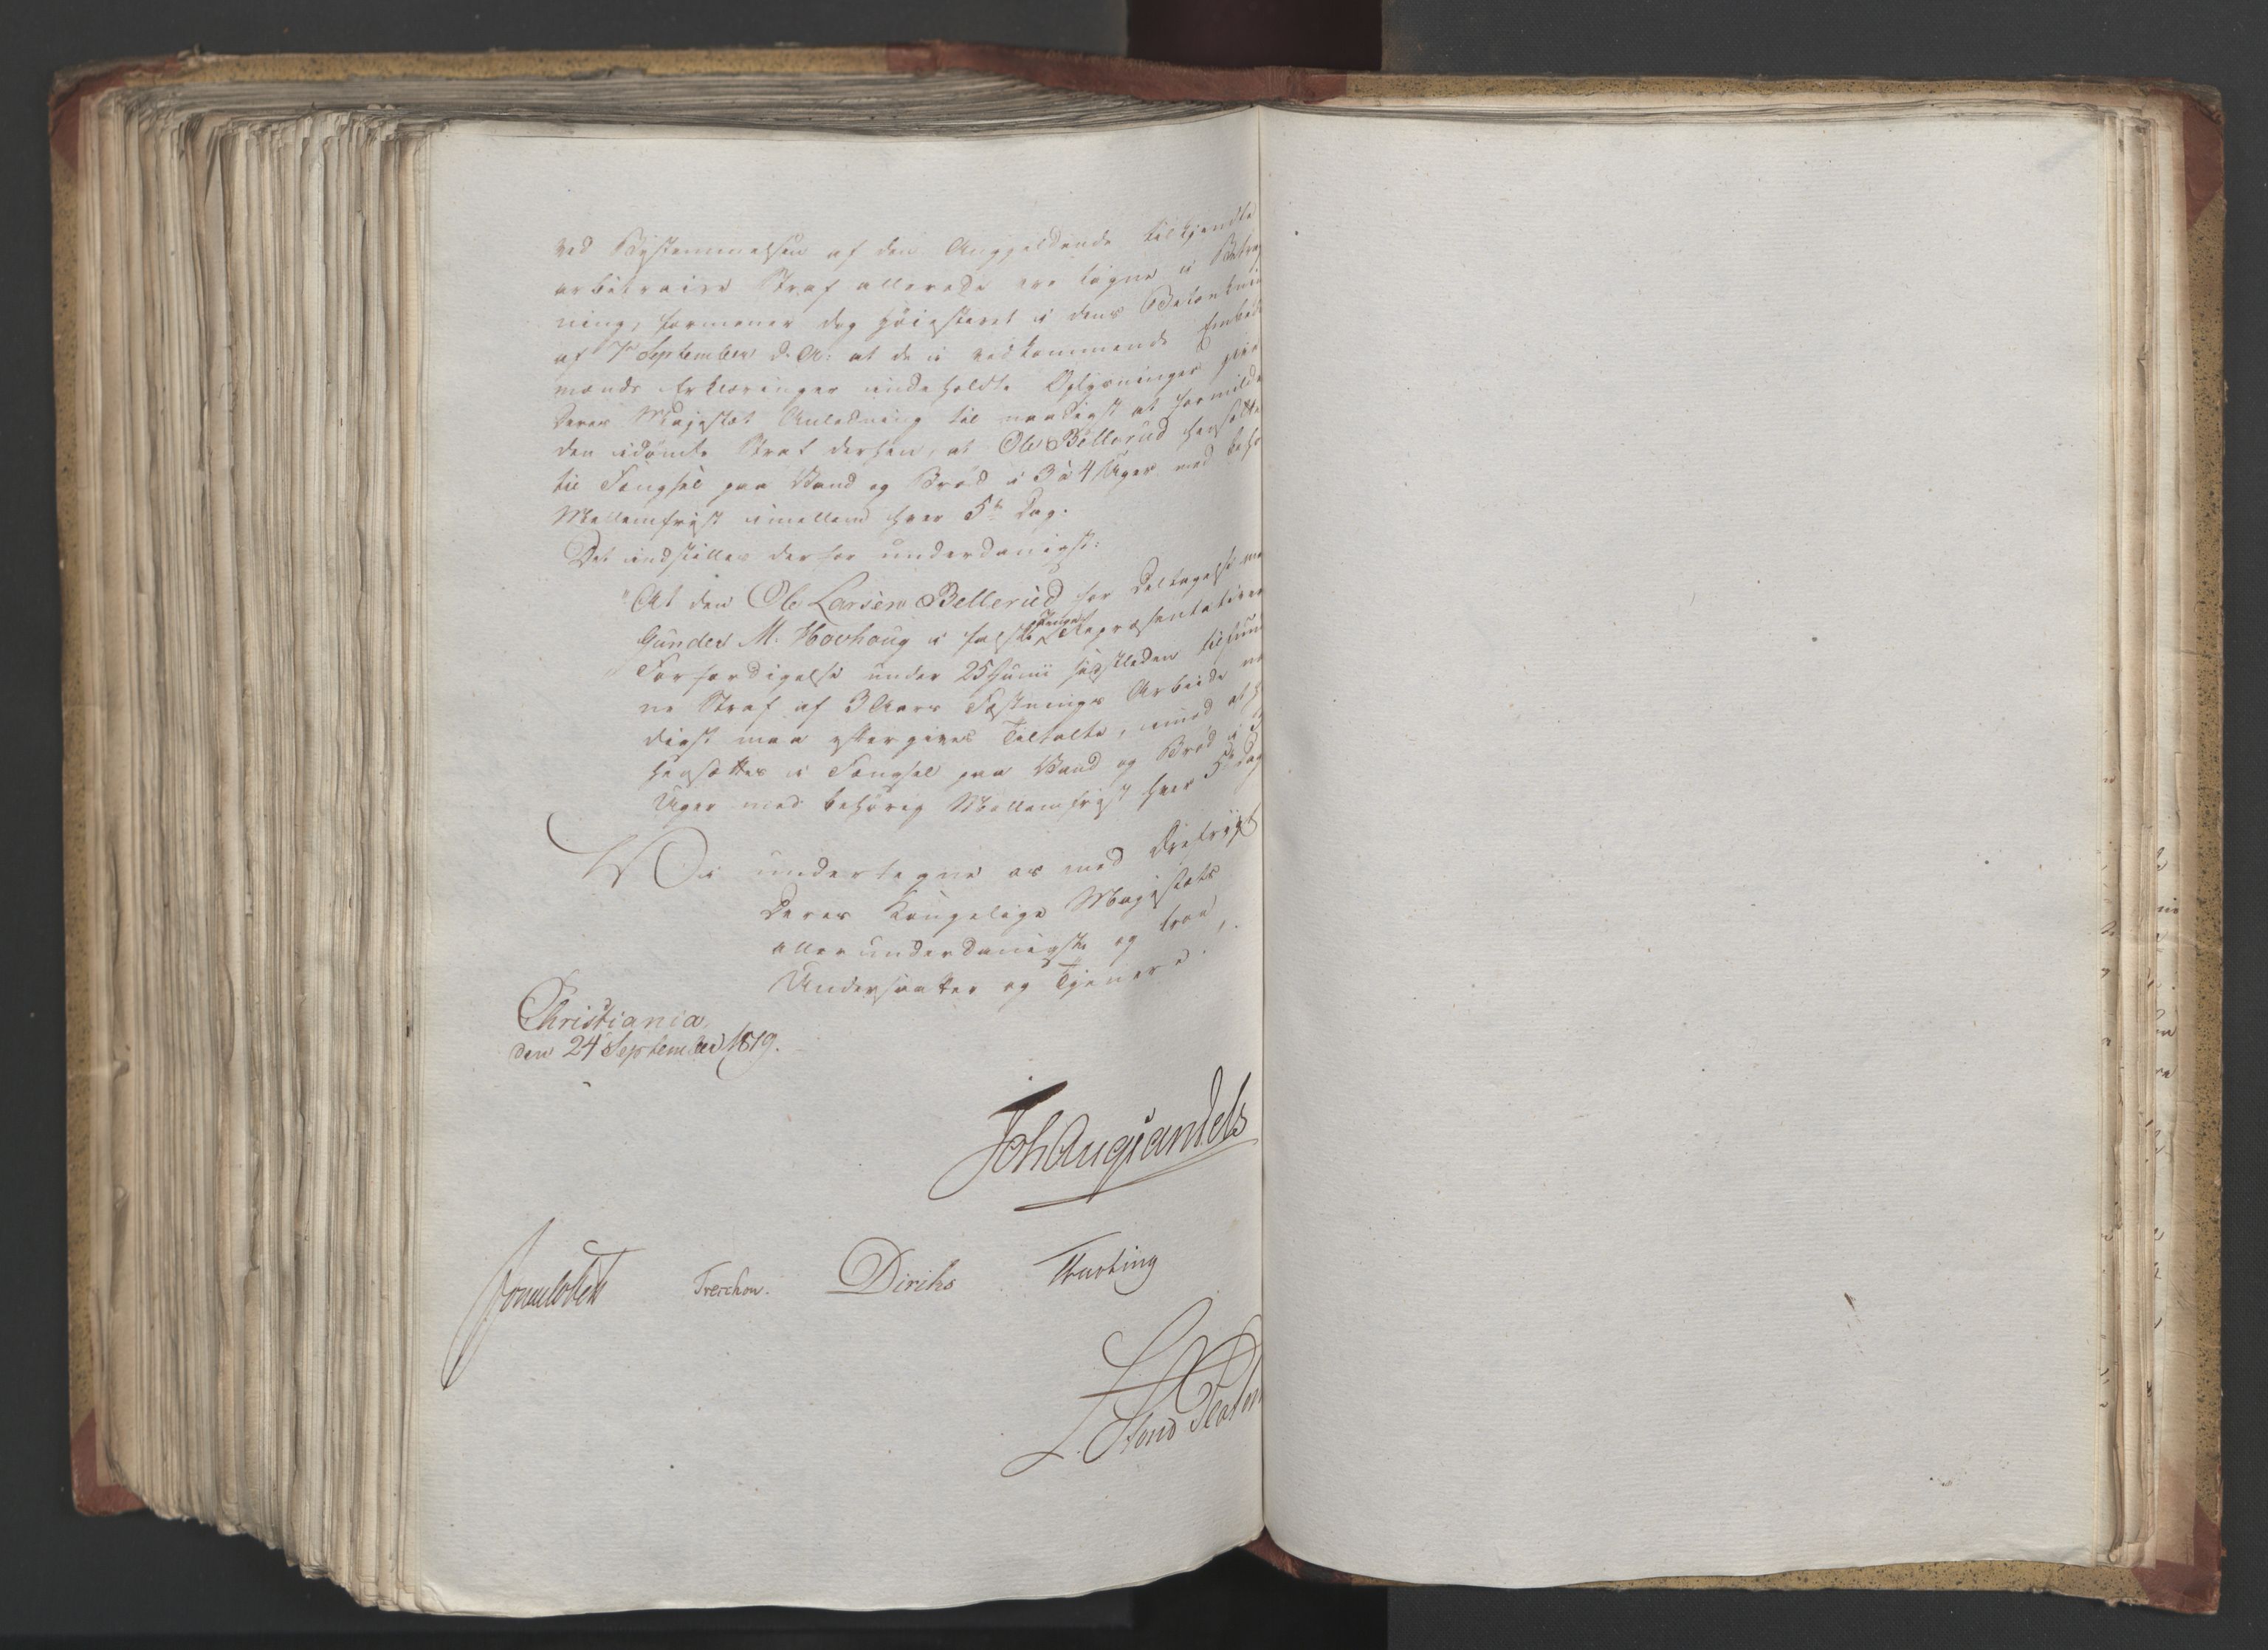 ved Bestemmelsen af den Angjeldende tilkjendte
arbitraire Straf allerede ere tagne i Betrag
ning, formener dog Høiesteret i dens Betænkni
af 7de September d. A: at de i vedkommende Embeds
mænds Erklæringer indeholdte Oplysninger give
Deres Majestæt Anledning til naadigst at formilde
den idømte Straf derhen, at Ole Bellerud hensættes
til Fængsel paa Vand og Brød i 3 à 4 Uger med behø
Mellemfrist imellem hver 5te Dag.
Det indstilles derfor underdanigst:
"At den Ole Larsen Bellerud for Deltagelse me
Gunder M. Hovhoug i falske Penge Repræsentativer
Forfærdigelse under 25 Junii sidstleden tilfund
ne Straf af 3 Aars Fæstnings Arbeide na
digst maa eftergives Tiltalte, imod at h
hensættes i Fængsel paa Vand og Brød i 3
Uger med behørig Mellemfrist hver 5te Dag
Vi undertegne os med Dybfrygt
Deres Kongelige Majestæts
allerunderdanigste og troe
Undersaatter og Tjenere.
Christiania
den 24 September 1819.
Joh Aug Sandels
Sommelfeldt Treschow. Diriks Fasting
L.